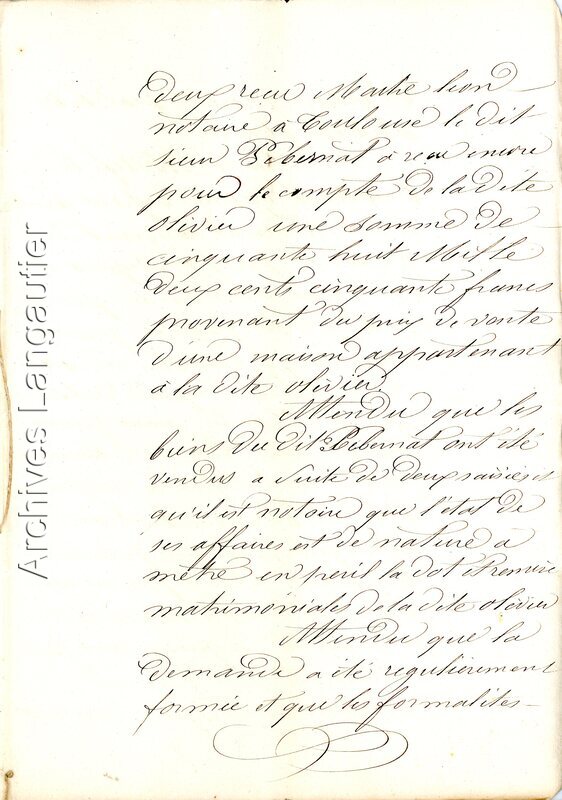 deux reçu Maitre bon
notaire à Toulouse le dit
sieur Pebernat a reçu encore
pour le compte de la dite
olivier une somme de
cinquante huit Mille
deux cents cinquante francs
provenant du prix de vente
d'une maison appartenant
à la dite olivier.
Attendu que les
biens du dit Pebernat ont été
vendus a suite de deux saisies et
qu'il est notoire que l'état de
ses affaires est de nature à
metre en peril la dot et
matrimoniales de la dite olivier
Attendu que la
demande a été regulierement
formée et que les formalites
Archives Langautier